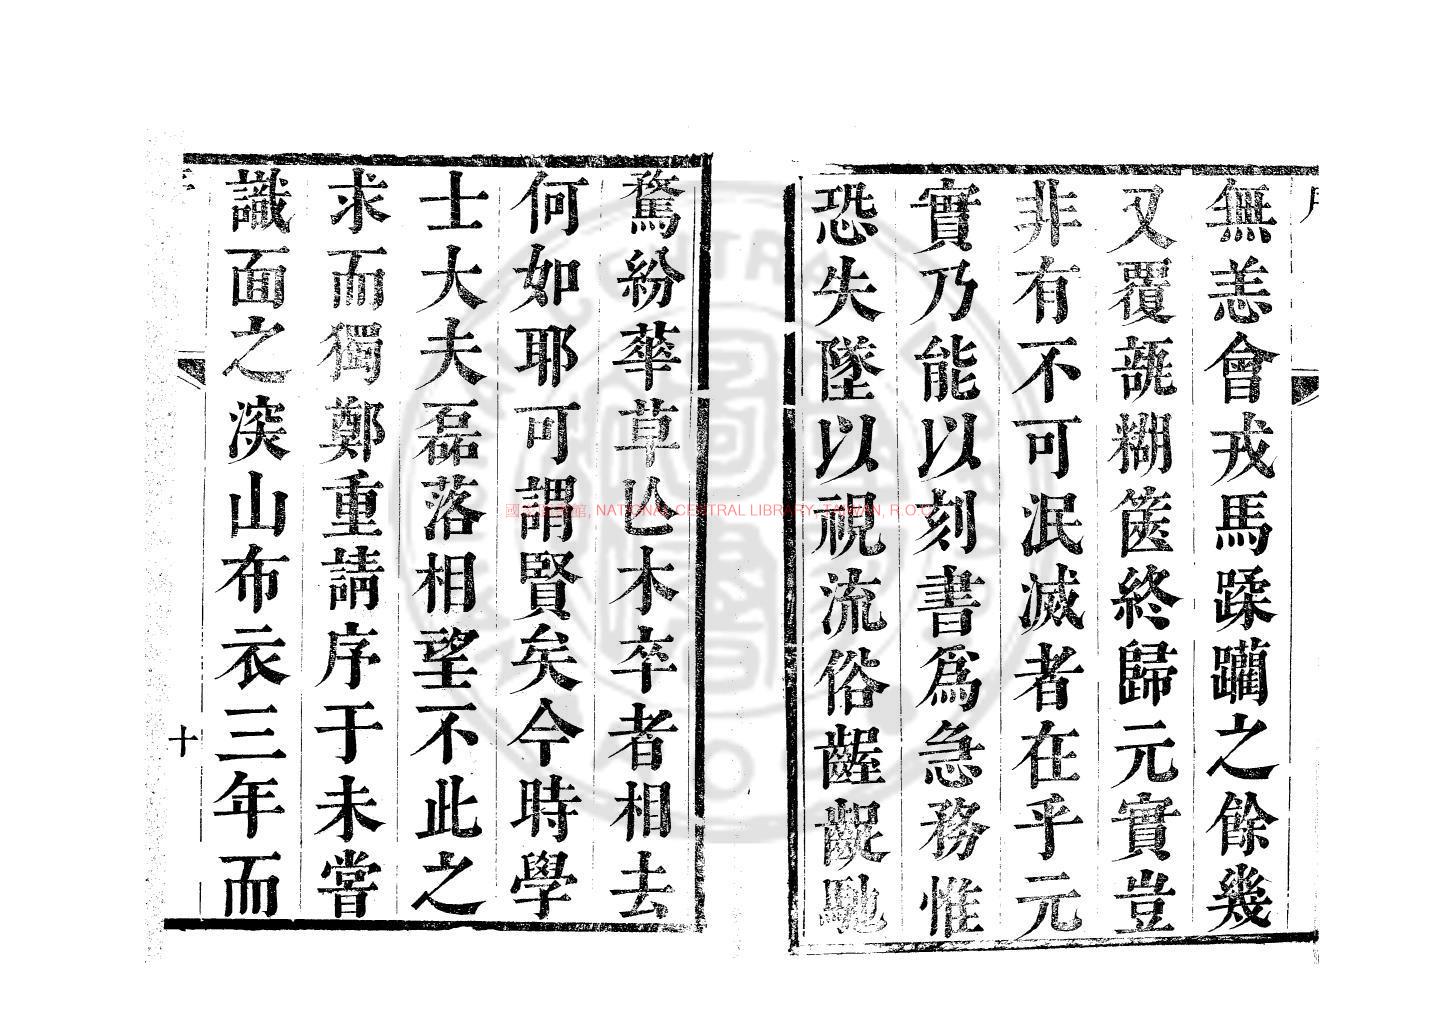 無恙會戎馬蹂躪之餘幾
又覆瓿糊篋終歸元實豈
非有不可泯滅者在乎元
實乃能以刻書爲急務惟
恐失墜以視流俗齷齪馳
騖紛華草亾木卒者相去
何如耶可謂賢矣今時學
士大夫磊落相望不此之
求而獨鄭重請序于未嘗
識面之深山布衣三年而
十
國家圖書館, NATIONAL CENTRAL LIBRARY, TAIWAN, R.O.C